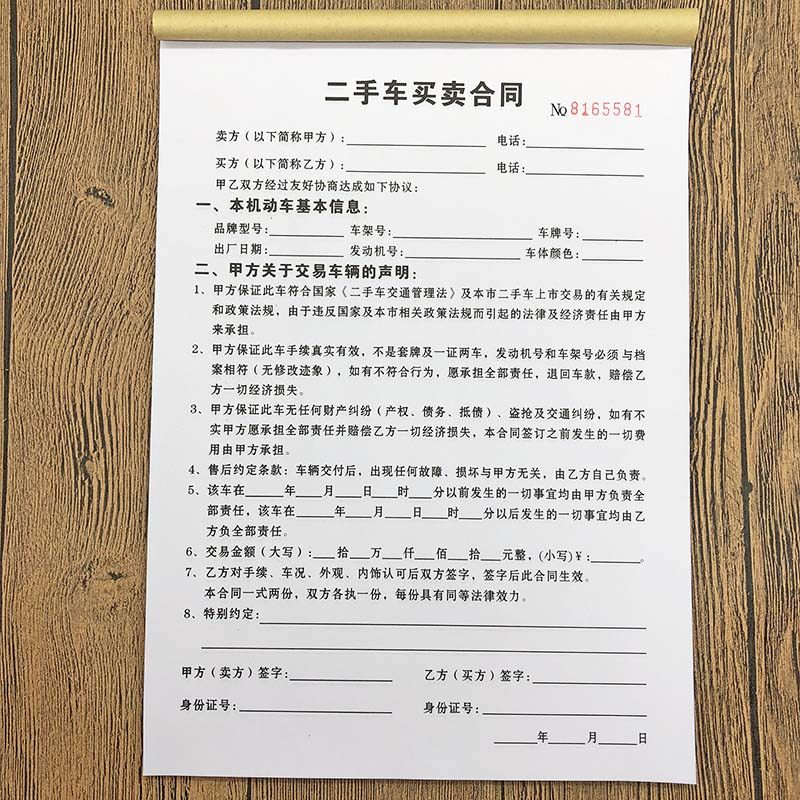 二手车买卖合同
No 8165581
卖方（以下简称甲方）：____________ 电话：____________
买方（以下简称乙方）：____________ 电话：____________
甲乙双方经过友好协商达成如下协议：
一、本机动车基本信息：
品牌型号：________ 车架号：____________ 车牌号：________
出厂日期：________ 发动机号：____________ 车体颜色：________
二、甲方关于交易车辆的声明：
1、甲方保证此车符合国家《二手车交通管理法》及本市二手车上市交易的有关规定
和政策法规，由于违反国家及本市相关政策法规而引起的法律及经济责任由甲方
来承担。
2、甲方保证此车手续真实有效，不是套牌及一证两车，发动机号和车架号必须与档
案相符（无修改迹象），如有不符合行为，愿承担全部责任，退回车款，赔偿乙
方一切经济损失。
3、甲方保证此车无任何财产纠纷（产权、债务、抵债）、盗抢及交通纠纷，如有不
实甲方愿承担全部责任并赔偿乙方一切经济损失，本合同签订之前发生的一切费
用由甲方承担。
4、售后约定条款：车辆交付后，出现任何故障、损坏与甲方无关，由乙方自己负责。
5、该车在____年____月____日____时____分以前发生的一切事宜均由甲方负责全
部责任，该车在____年____月____日____时____分以后发生的一切事宜均由乙
方负全部责任。
6、交易金额（大写）：___拾___万___仟___佰___拾___元整，(小写)¥：______。
7、乙方对手续、车况、外观、内饰认可后双方签字，签字后此合同生效。
本合同一式两份，双方各执一份，每份具有同等法律效力。
8、特别约定：________________________
甲方（卖方）签字：____________ 乙方（买方）签字：____________
身份证号：____________ 身份证号：____________
____年____月____日